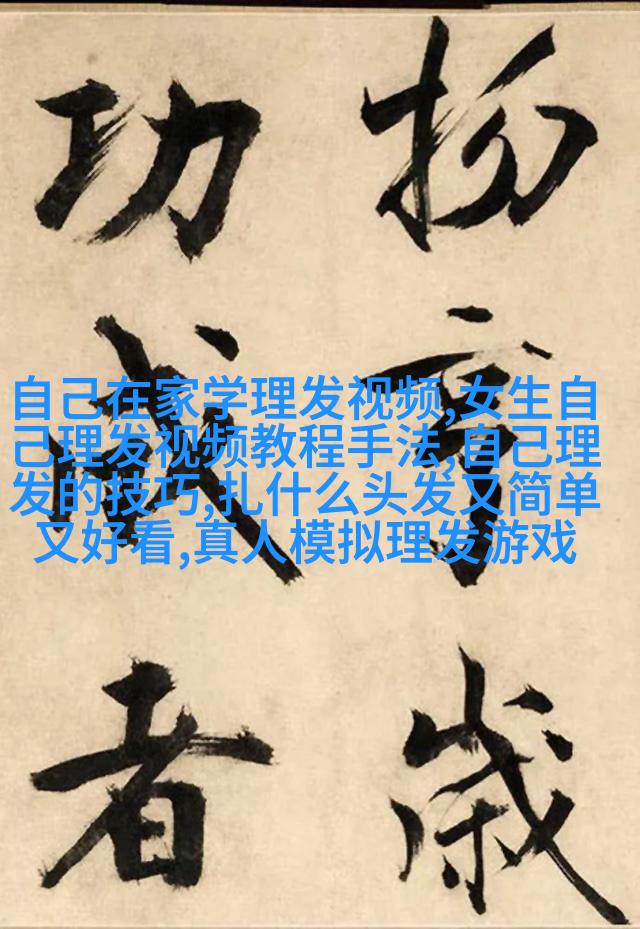 歲
功成者
自己在家学理发视频,女生自
己理发视频教程手法,自己理
发的技巧,扎什么头发又简单
又好看,真人模拟理发游戏